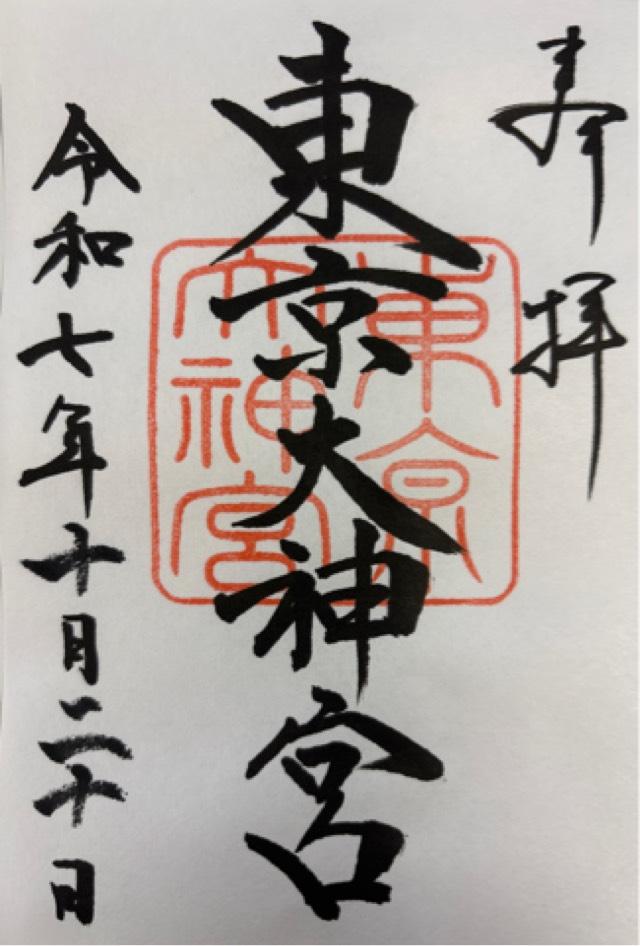 奉拝
東京大神宮
東京
大神宮
令和七年十月二十日